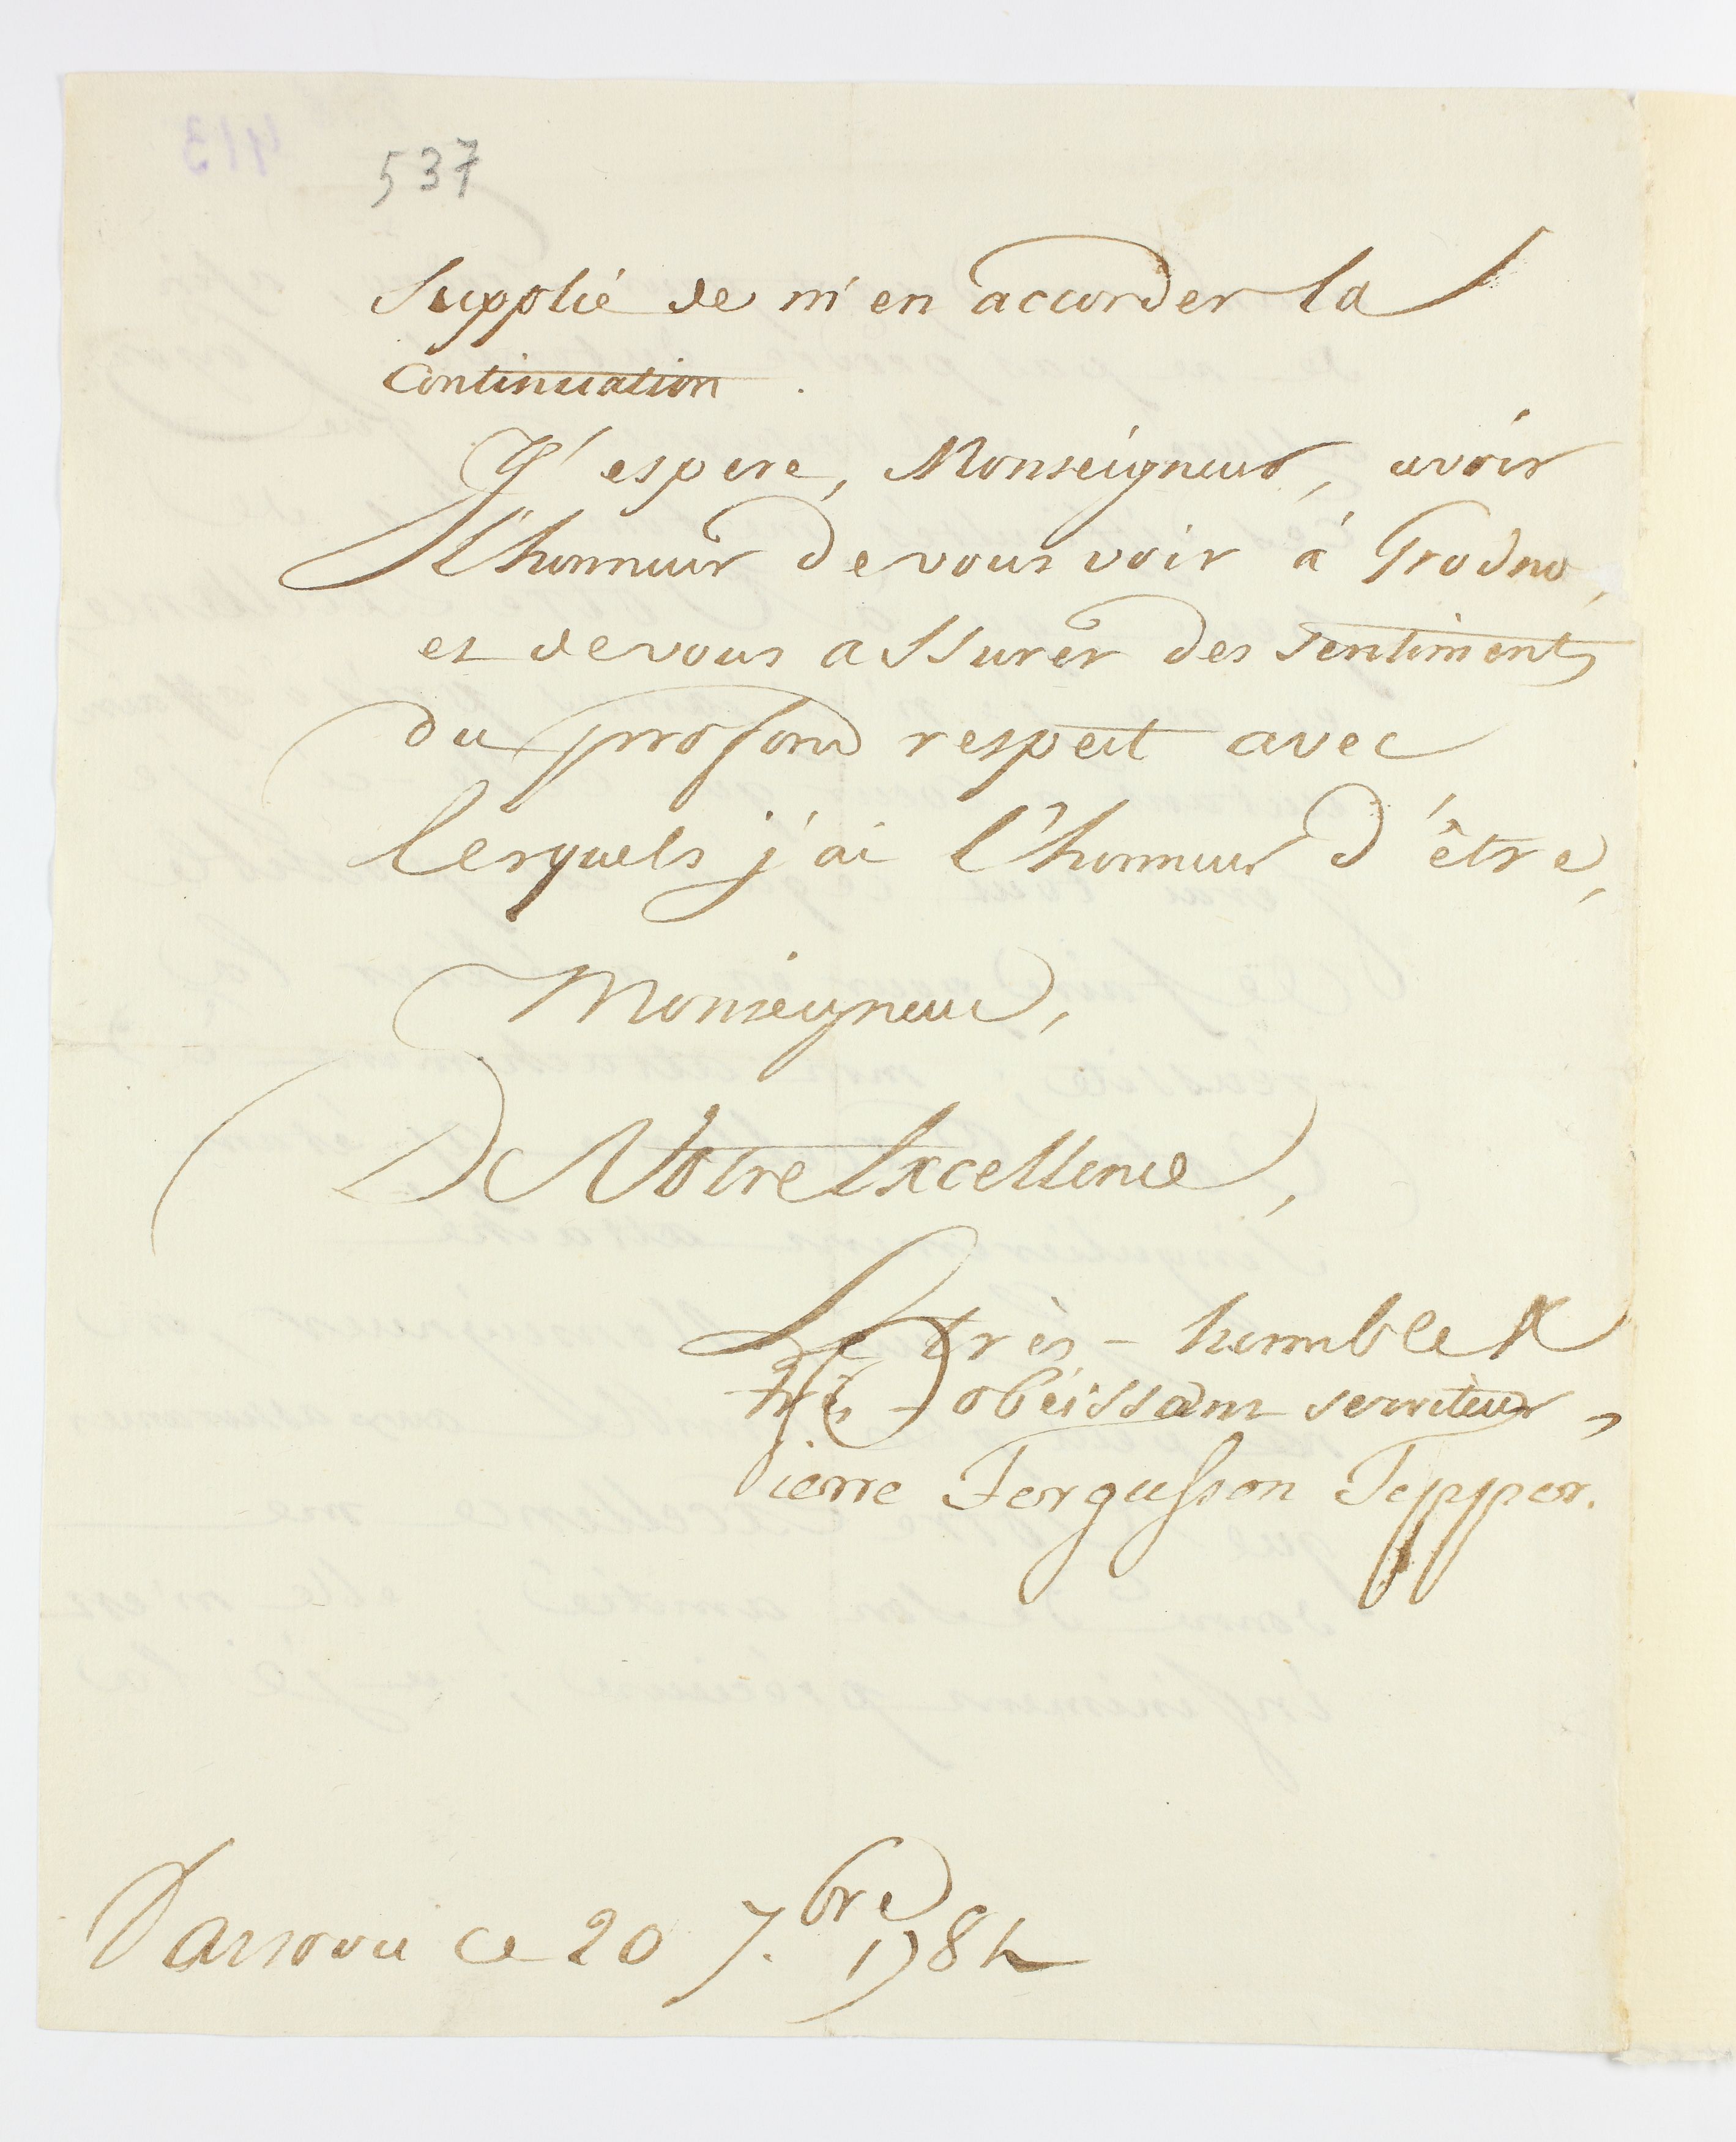 537
Supplié de m'en accorder la
Continuation.
J'espere, Monseigneur, avoir
l'honneur de vous voir à Grodno,
et de vous assurer des sentiments
du profond respect avec
lesquels j'ai l'honneur d'être,
Monseigneur,
De Votre Excellence,
Le très-humble &
très-obéissant serviteur,
Pierre Fergusson Tepper.
Varsovie ce 20 7.bre 1784